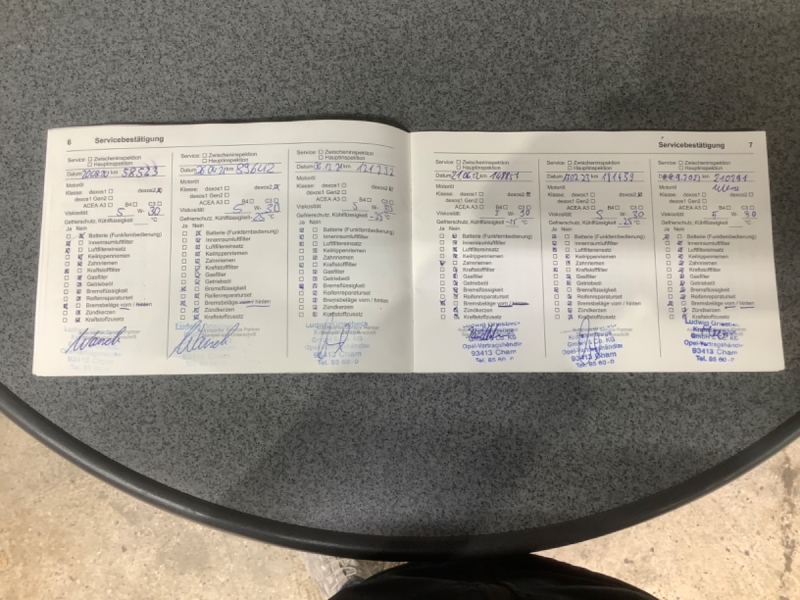 6 Servicebestätigung
Service: Zwischeninspektion
Hauptinspektion
Datum km 58523
Motoröl
Klasse: dexos1 dexos2
dexos1 Gen2
ACEA A3 B4 C3
Viskosität: 5 W- 30
Gefrierschutz, Kühlflüssigkeit °C
Ja Nein
Batterie (Funkfernbedienung)
Innenraumluftfilter
Luftfiltereinsatz
Keilrippenriemen
Zahnriemen
Kraftstofffilter
Gasfilter
Getriebeöl
Bremsflüssigkeit
Reifenreparaturset
Bremsbeläge vorn / hinten
Zündkerzen
Kraftstoffzusatz
Service: Zwischeninspektion
Hauptinspektion
Datum km
Motoröl
Klasse: dexos1 dexos2
dexos1 Gen2
ACEA A3 B4 C3
Viskosität: 5 W- 30
Gefrierschutz, Kühlflüssigkeit -25 °C
Ja Nein
Batterie (Funkfernbedienung)
Innenraumluftfilter
Luftfiltereinsatz
Keilrippenriemen
Zahnriemen
Kraftstofffilter
Gasfilter
Getriebeöl
Bremsflüssigkeit
Reifenreparaturset
Bremsbeläge vorn / hinten
Zündkerzen
Kraftstoffzusatz
Service: Zwischeninspektion
Hauptinspektion
Datum km
Motoröl
Klasse: dexos1 dexos2
dexos1 Gen2
ACEA A3 B4 C3
Viskosität: 5 W-
Gefrierschutz, Kühlflüssigkeit -25 °C
Ja Nein
Batterie (Funkfernbedienung)
Innenraumluftfilter
Luftfiltereinsatz
Keilrippenriemen
Zahnriemen
Kraftstofffilter
Gasfilter
Getriebeöl
Bremsflüssigkeit
Reifenreparaturset
Bremsbeläge vorn / hinten
Zündkerzen
Kraftstoffzusatz
93413 Cham
Servicebestätigung 7
Service: Zwischeninspektion
Hauptinspektion
Datum km
Motoröl
Klasse: dexos1 dexos2
dexos1 Gen2
ACEA A3 B4 C3
Viskosität: 5 W- 30
Gefrierschutz, Kühlflüssigkeit °C
Ja Nein
Batterie (Funkfernbedienung)
Innenraumluftfilter
Luftfiltereinsatz
Keilrippenriemen
Zahnriemen
Kraftstofffilter
Gasfilter
Getriebeöl
Bremsflüssigkeit
Reifenreparaturset
Bremsbeläge vorn /
Zündkerzen
Kraftstoffzusatz
Opel-Vertragshändler
93413 Cham
Service: Zwischeninspektion
Hauptinspektion
Datum km 181439
Motoröl
Klasse: dexos1 dexos2
dexos1 Gen2
ACEA A3 B4 C3
Viskosität: 5 W- 30
Gefrierschutz, Kühlflüssigkeit -25 °C
Ja Nein
Batterie (Funkfernbedienung)
Innenraumluftfilter
Luftfiltereinsatz
Keilrippenriemen
Zahnriemen
Kraftstofffilter
Gasfilter
Getriebeöl
Bremsflüssigkeit
Reifenreparaturset
Bremsbeläge vorn / hinten
Zündkerzen
Kraftstoffzusatz
93413 Cham
Service: Zwischeninspektion
Hauptinspektion
Datum km 210291
Motoröl
Klasse: dexos1 dexos2
dexos1 Gen2
ACEA A3 B4 C3
Viskosität: 5 W- 30
Gefrierschutz, Kühlflüssigkeit °C
Ja Nein
Batterie (Funkfernbedienung)
Innenraumluftfilter
Luftfiltereinsatz
Keilrippenriemen
Zahnriemen
Kraftstofffilter
Gasfilter
Getriebeöl
Bremsflüssigkeit
Reifenreparaturset
Bremsbeläge vorn / hinten
Zündkerzen
Kraftstoffzusatz
Ludwig
Opel-Vertragshändler
93413 Cham